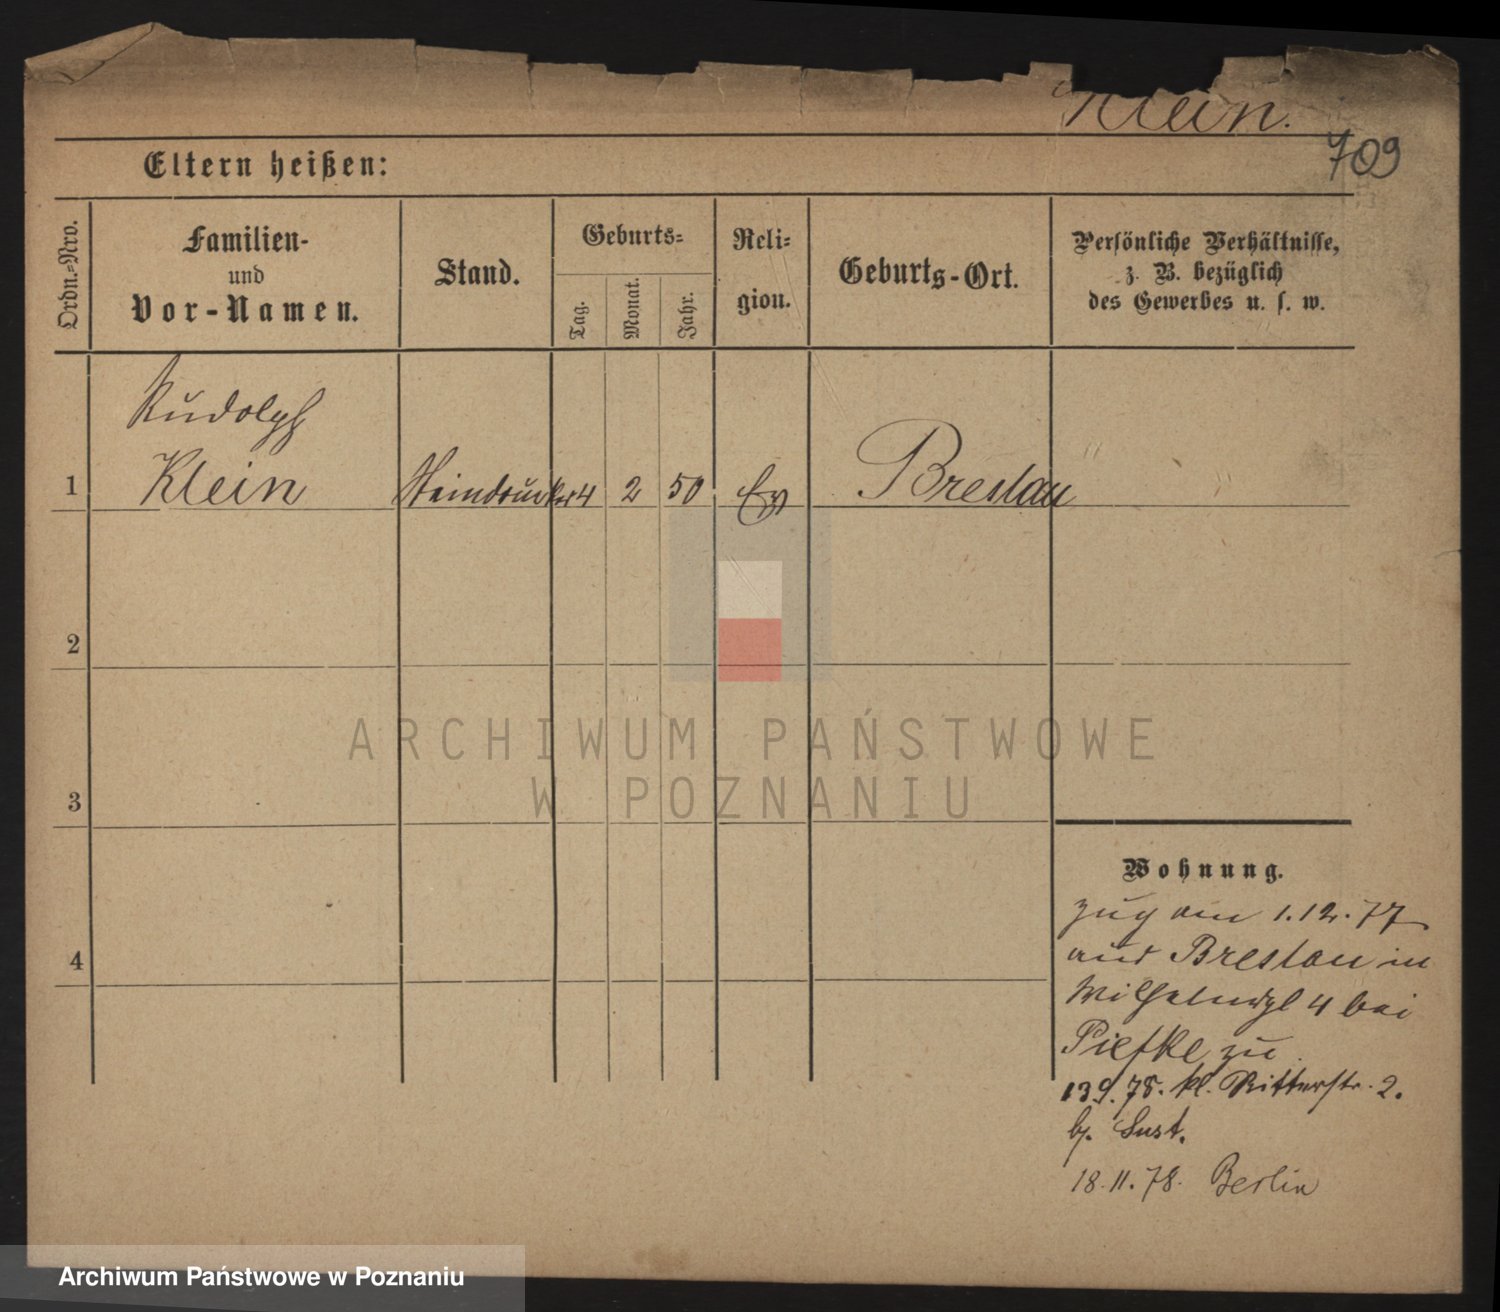 Klein.
709
Eltern heißen:
Ordn.=Nro.
Familien-
und
Vor-Namen.
Stand.
Geburts=
Tag.
Monat.
Jahr.
Reli=
gion.
Geburts-Ort.
Persönliche Verhältnisse,
z. B. bezüglich
des Gewerbes u. s. w.
Rudolph
1 Klein Steindrucker 4 2 50 Ev Breslau
2
3
4
ARCHIWUM PAŃSTWOWE
W POZNANIU
Wohnung.
zug am 1.12.77
aus Breslau in
Wilhelmspl 4 bei
Piefke zu
13.9.78. kl. Ritterstr. 2.
b.
18.11.78. Berlin
Archiwum Państwowe w Poznaniu